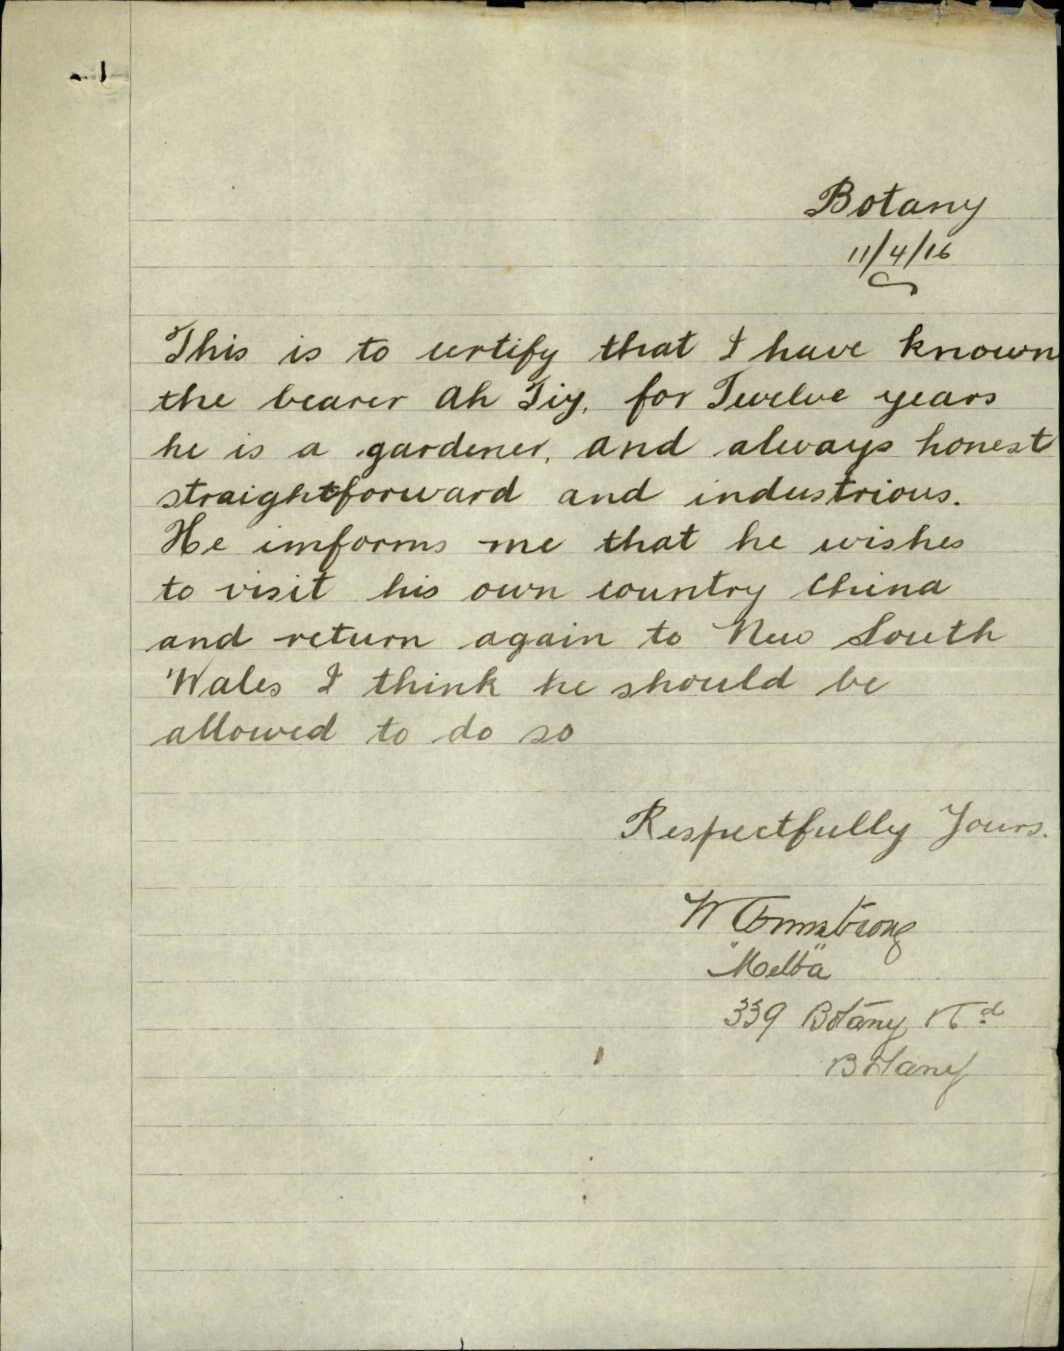 Botany
11/4/16
This is to certify that I have known
the bearer Ah Tiy, for Twelve years
he is a gardener, and always honest
straightforward and industrious.
He imforms me that he wishes
to visit his own country China
and return again to New South
Wales I think he should be
allowed to do so
Respectfully Yours.
W Armstrong
"Melba"
339 Botany Rd
Botany